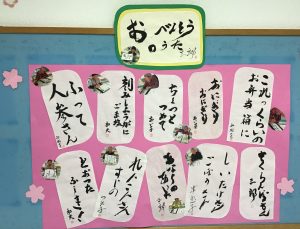 お べんとう
の うた
これっくらいの
お弁当箱に
おにぎり
おにぎり
ちょっと
つめて
刻みしょうがに
ごま塩
ふって
人参さん
さくらんぼさん
しいたけさん
ごぼうさん
あなの
あいた
れんこんさん
すじの
とおった
ふーき！